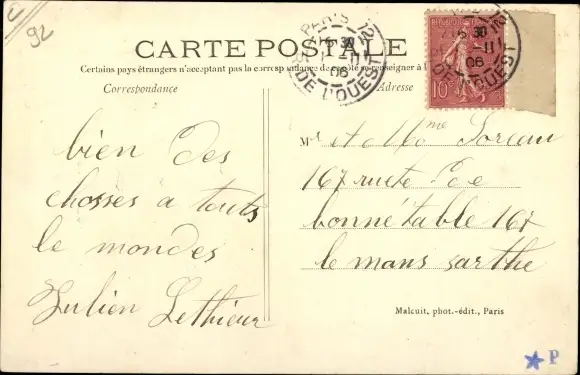 92
CARTE POSTALE
Certains pays étrangers n'acceptent pas la correspondance de ce côté se renseigner à la
Correspondance
Adresse
PARIS
16 30
2-11
06
DE L'OUEST
10c
bien des
chosses a touts
le mondes
Julien Lethieur
Mr et Mme Loreau
167 rue de
bonnétable 167
le mans sarthe
Malcuit, phot.-édit., Paris
P